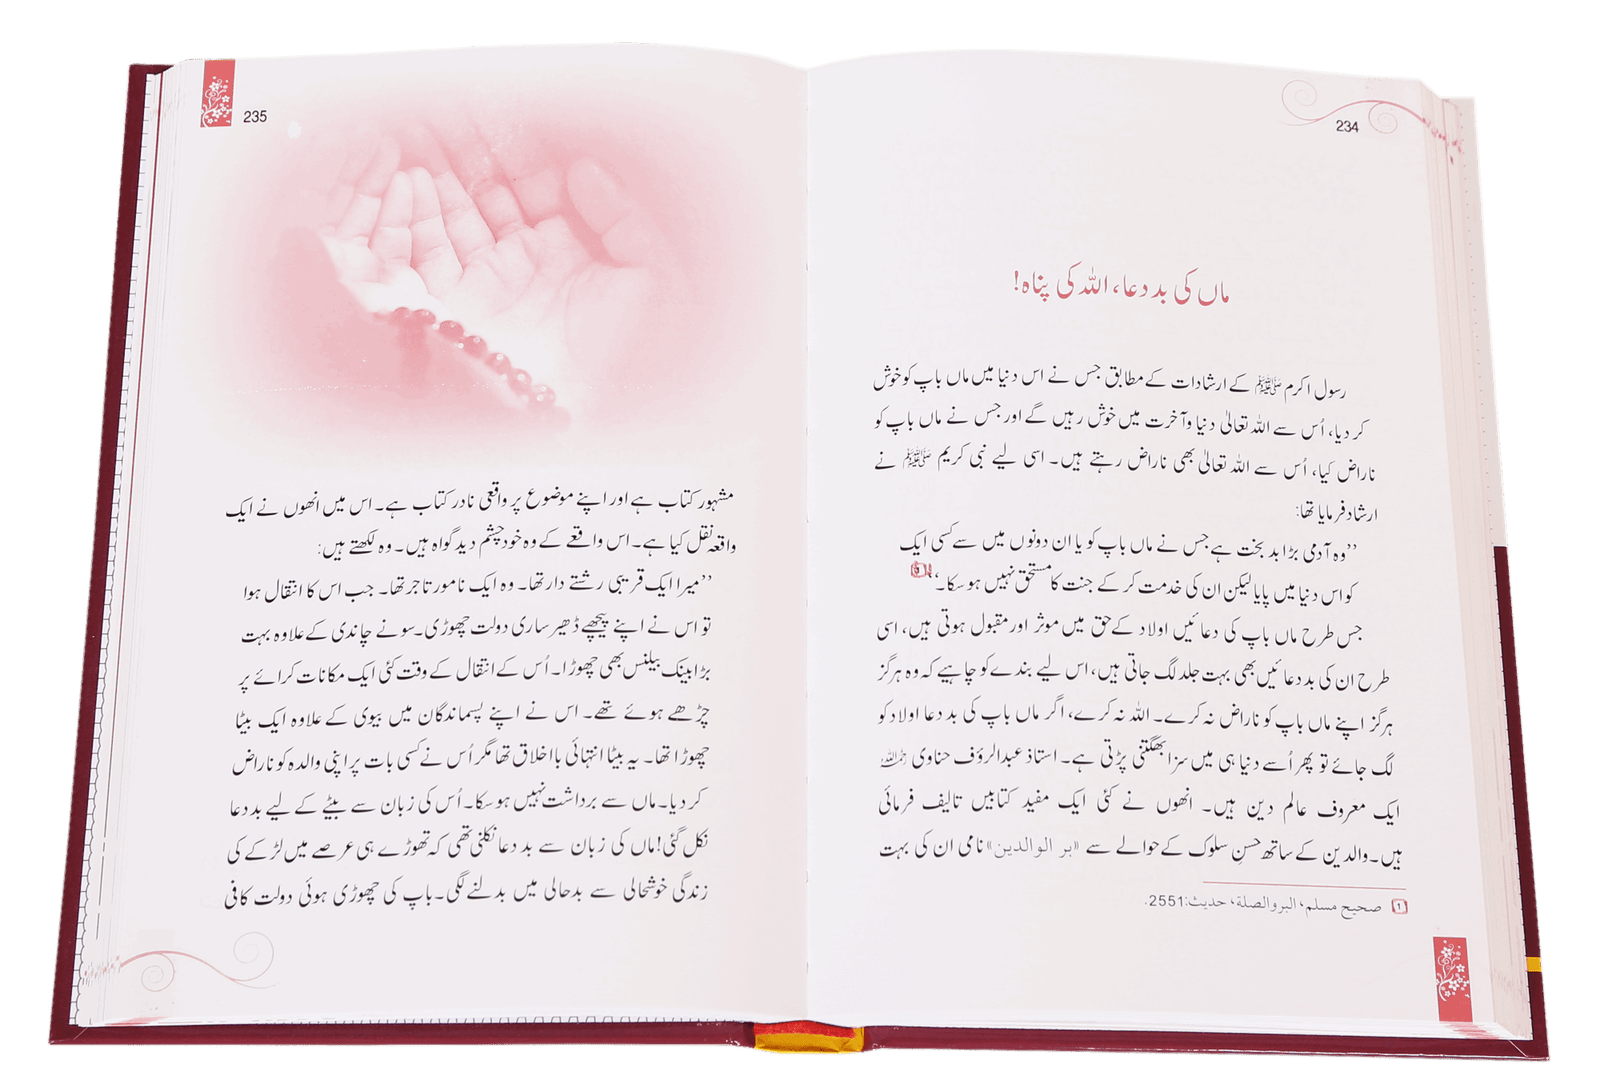 234
ماں کی بددعا، اللہ کی پناہ!
رسول اکرم ﷺ کے ارشادات کے مطابق جس نے اس دنیا میں ماں باپ کو خوش
کر دیا، اُس سے اللہ تعالیٰ دنیا وآخرت میں خوش رہیں گے اور جس نے ماں باپ کو
ناراض کیا، اُس سے اللہ تعالیٰ بھی ناراض رہتے ہیں۔ اسی لیے نبی کریم ﷺ نے
ارشاد فرمایا تھا:
’’وہ آدمی بڑا بد بخت ہے جس نے ماں باپ کو یا ان دونوں میں سے کسی ایک
کو اس دنیا میں پایا لیکن ان کی خدمت کر کے جنت کا مستحق نہیں ہو سکا۔‘‘
جس طرح ماں باپ کی دعائیں اولاد کے حق میں موثر اور مقبول ہوتی ہیں، اسی
طرح ان کی بددعائیں بھی بہت جلد لگ جاتی ہیں، اس لیے بندے کو چاہیے کہ وہ ہرگز
ہرگز اپنے ماں باپ کو ناراض نہ کرے۔ اللہ نہ کرے، اگر ماں باپ کی بد دعا اولاد کو
لگ جائے تو پھر اُسے دنیا ہی میں سزا بھگتنی پڑتی ہے۔ استاذ عبدالرؤف حناوی رحمہ اللہ
ایک معروف عالم دین ہیں۔ انھوں نے کئی ایک مفید کتابیں تالیف فرمائی
ہیں۔ والدین کے ساتھ حسنِ سلوک کے حوالے سے «بر الوالدین» نامی ان کی بہت
1 صحیح مسلم، البر والصلة، حدیث:2551.
235
مشہور کتاب ہے اور اپنے موضوع پر واقعی نادر کتاب ہے۔ اس میں انھوں نے ایک
واقعہ نقل کیا ہے۔ اس واقعے کے وہ خود چشم دید گواہ ہیں۔ وہ لکھتے ہیں:
’’میرا ایک قریبی رشتے دار تھا۔ وہ ایک نامور تاجر تھا۔ جب اس کا انتقال ہوا
تو اس نے اپنے پیچھے ڈھیر ساری دولت چھوڑی۔ سونے چاندی کے علاوہ بہت
بڑا بینک بیلنس بھی چھوڑا۔ اُس کے انتقال کے وقت کئی ایک مکانات کرائے پر
چڑھے ہوئے تھے۔ اس نے اپنے پسماندگان میں بیوی کے علاوہ ایک بیٹا
چھوڑا تھا۔ یہ بیٹا انتہائی بااخلاق تھا مگر اُس نے کسی بات پر اپنی والدہ کو ناراض
کر دیا۔ ماں سے برداشت نہیں ہو سکا۔ اُس کی زبان سے بیٹے کے لیے بددعا
نکل گئی! ماں کی زبان سے بد دعا نکلنی تھی کہ تھوڑے ہی عرصے میں لڑکے کی
زندگی خوشحالی سے بدحالی میں بدلنے لگی۔ باپ کی چھوڑی ہوئی دولت کافی